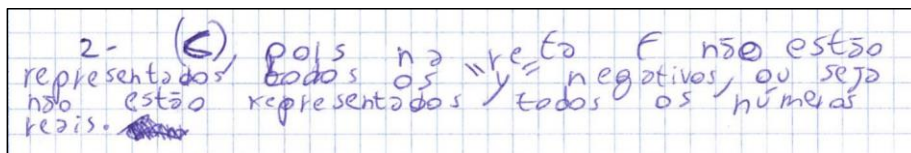 2- (C), pois na reta F não estão
representados, todos os "y" negativos, ou seja
não estão representados todos os números
reais.